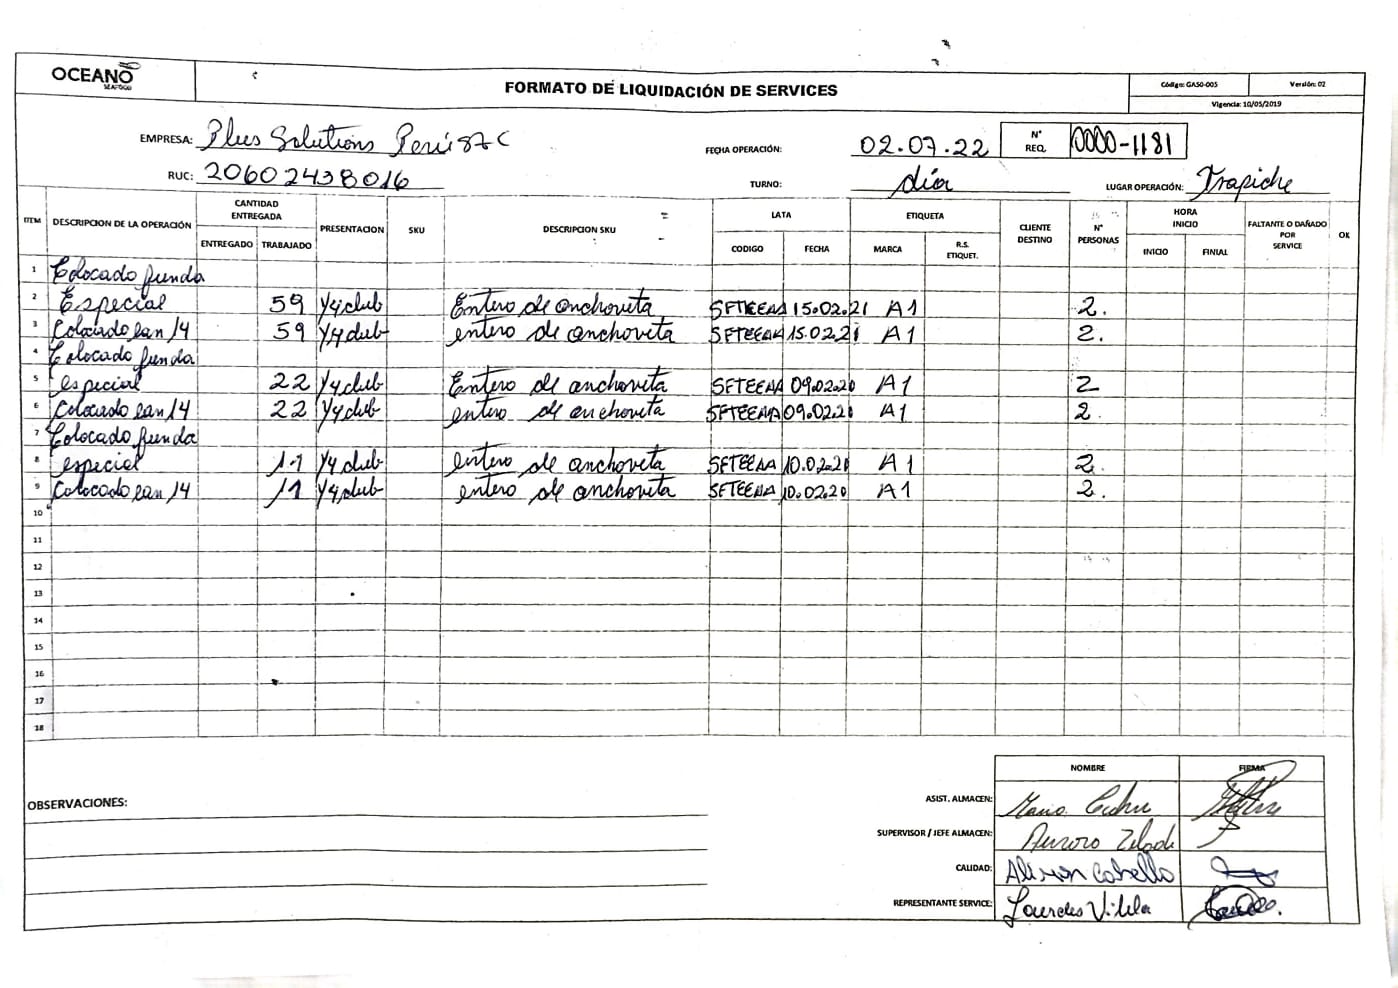 OCEANO
SEAFOOD
FORMATO DE LIQUIDACIÓN DE SERVICES
Código: GASO-005 Versión: 02
Vigencia: 10/05/2019
EMPRESA: Plus Solutions Perú SAC
FECHA OPERACIÓN: 02.07.22
N° REQ. 0000-1181
RUC: 20602438016
TURNO: día
LUGAR OPERACIÓN: Trapiche
ITEM DESCRIPCION DE LA OPERACIÓN CANTIDAD ENTREGADA ENTREGADO TRABAJADO PRESENTACION SKU DESCRIPCION SKU LATA CODIGO FECHA ETIQUETA MARCA R.S. ETIQUET. CLIENTE DESTINO N° PERSONAS HORA INICIO INICIO FINIAL FALTANTE O DAÑADO POR SERVICE OK
1 Colocado funda
2 Especial 59 1/4 club Entero de anchoveta 15.02.21 A1 2.
3 Colocado 59 1/4 club entero de anchoveta 15.02.21 A1 2.
4 Colocado funda
5 especial 22 1/4 club Entero de anchoveta SFTEENA 09.02.20 A1 2
6 Colocado 22 1/4 club entero de anchoveta SFTEENA 09.02.21 A1 2
7 Colocado funda
8 especial 11 1/4 club entero de anchoveta 10.02.20 A1 2.
9 Colocado 11 1/4 club entero de anchoveta SFTEENA 10.02.20 A1 2.
10
11
12
13
14
15
16
17
18
NOMBRE FIRMA
OBSERVACIONES:
ASIST. ALMACEN: Mario
SUPERVISOR / JEFE ALMACEN: Aurora
CALIDAD: Alison Cabello
REPRESENTANTE SERVICE: Lourdes Vilela